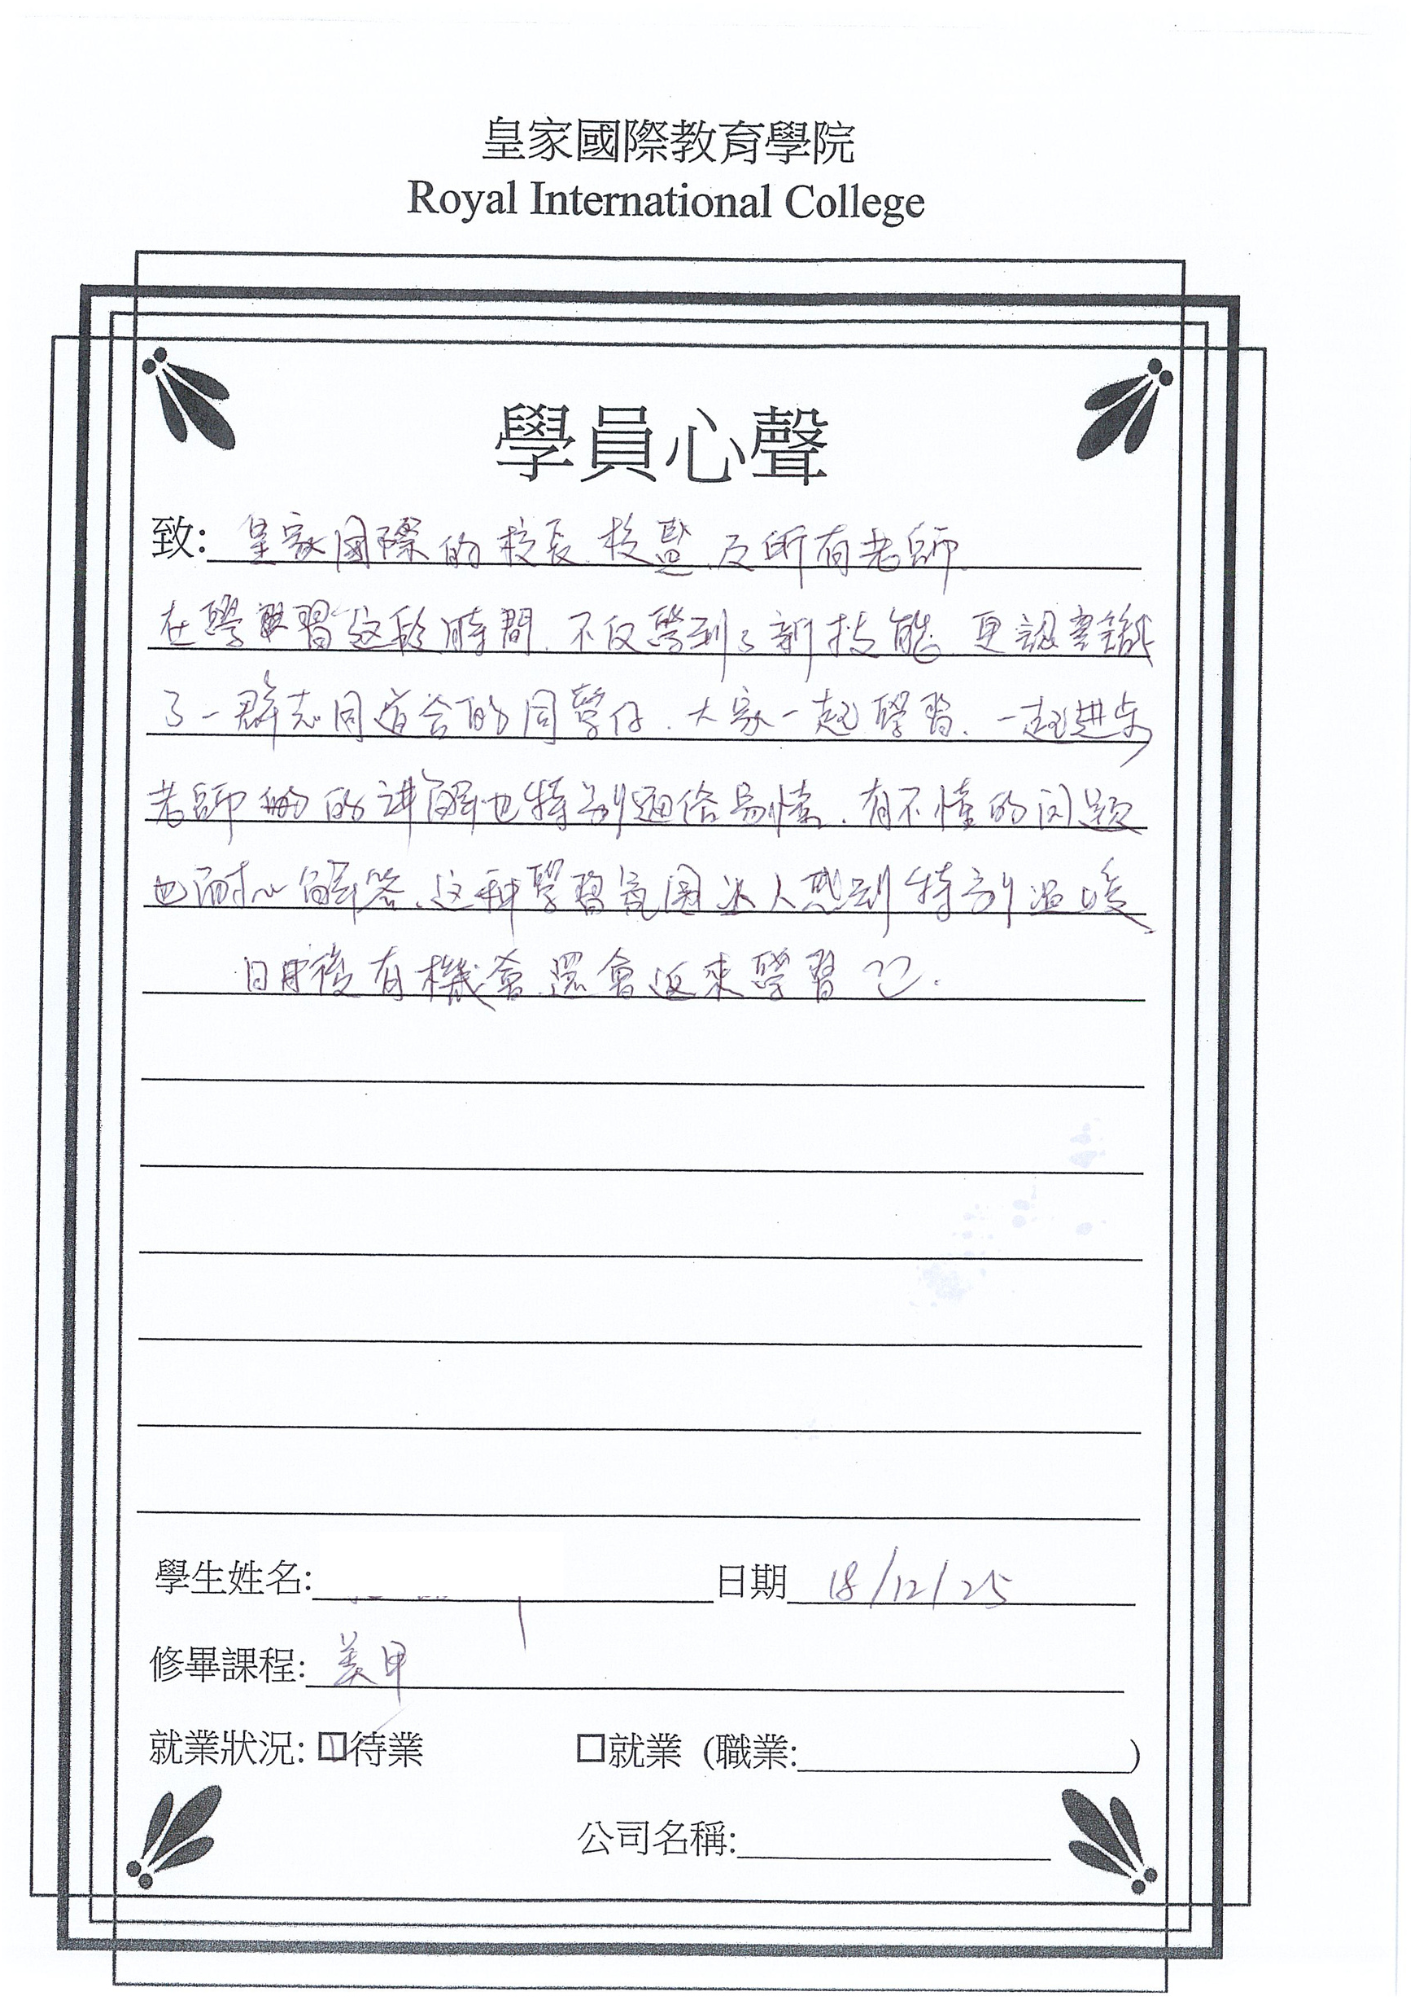 皇家國際教育學院
Royal International College
學員心聲
致: 皇家國際的校長.校監.及所有老師.
在學習这段時間.不仅學到了新技能.更認識
了一群志同道合的同學仔.大家一起學習.一起进步
老師們的讲解也特别通俗易懂.有不懂的问题
也耐心解答.这种學習氛围让人感到特别温暖.
日後有機會還會返來學習.
學生姓名: 日期 18/12/25
修畢課程: 美甲
就業狀況: ☑待業 □就業 (職業: )
公司名稱: